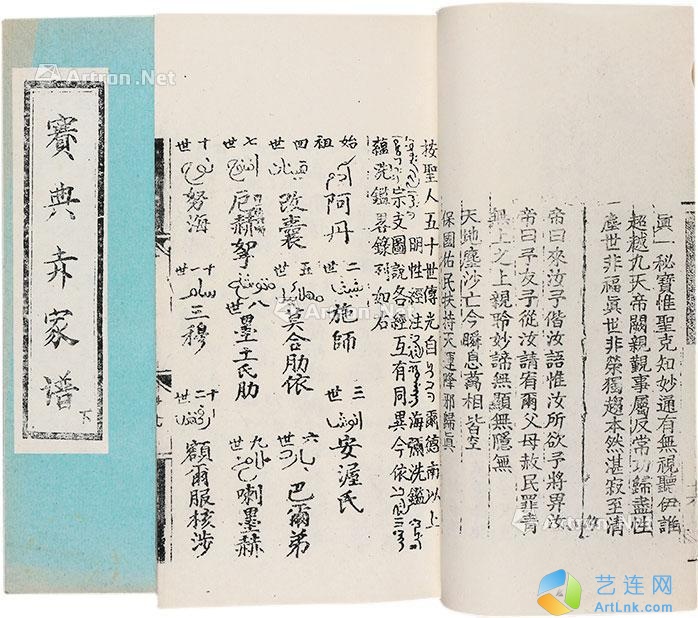 賽典赤家譜
下
眞一秘寶惟聖克知妙通有無視聽伊誰
超越九天帝闕親覲事屬反常功歸盡性
塵世非福眞世非榮獨趨本然湛寂至清
帝曰來汝予偕汝語惟汝所欲予將畀汝
帝曰予友予從汝請宥爾父母赦民罪眚
無上之上親聆妙諦無顯無隱無
天地塵沙亡今瞬息萬相皆空
保國佑民扶持天運降邪歸眞
按聖人五十世傳光自爾德南以上
明性經注海彌洗鑑
宗支圖說各經互有同異今依
蘊洗鑑畧錄列如右
始祖 阿丹 二世 شيث 施師 三世 انوش 安渥氏
四世 قينان 改囊 五世 莫合肋依 六世 巴爾弟
七世 厄赫拏 八世 墨王氏肋 九世 喇墨赫
十世 نوح 努海 十一世 سام 三穆 十二世 額爾服核涉
Artron.Net
Artron.Net
Artron.Net
Artron.Net
艺连网
ArtLnk.com